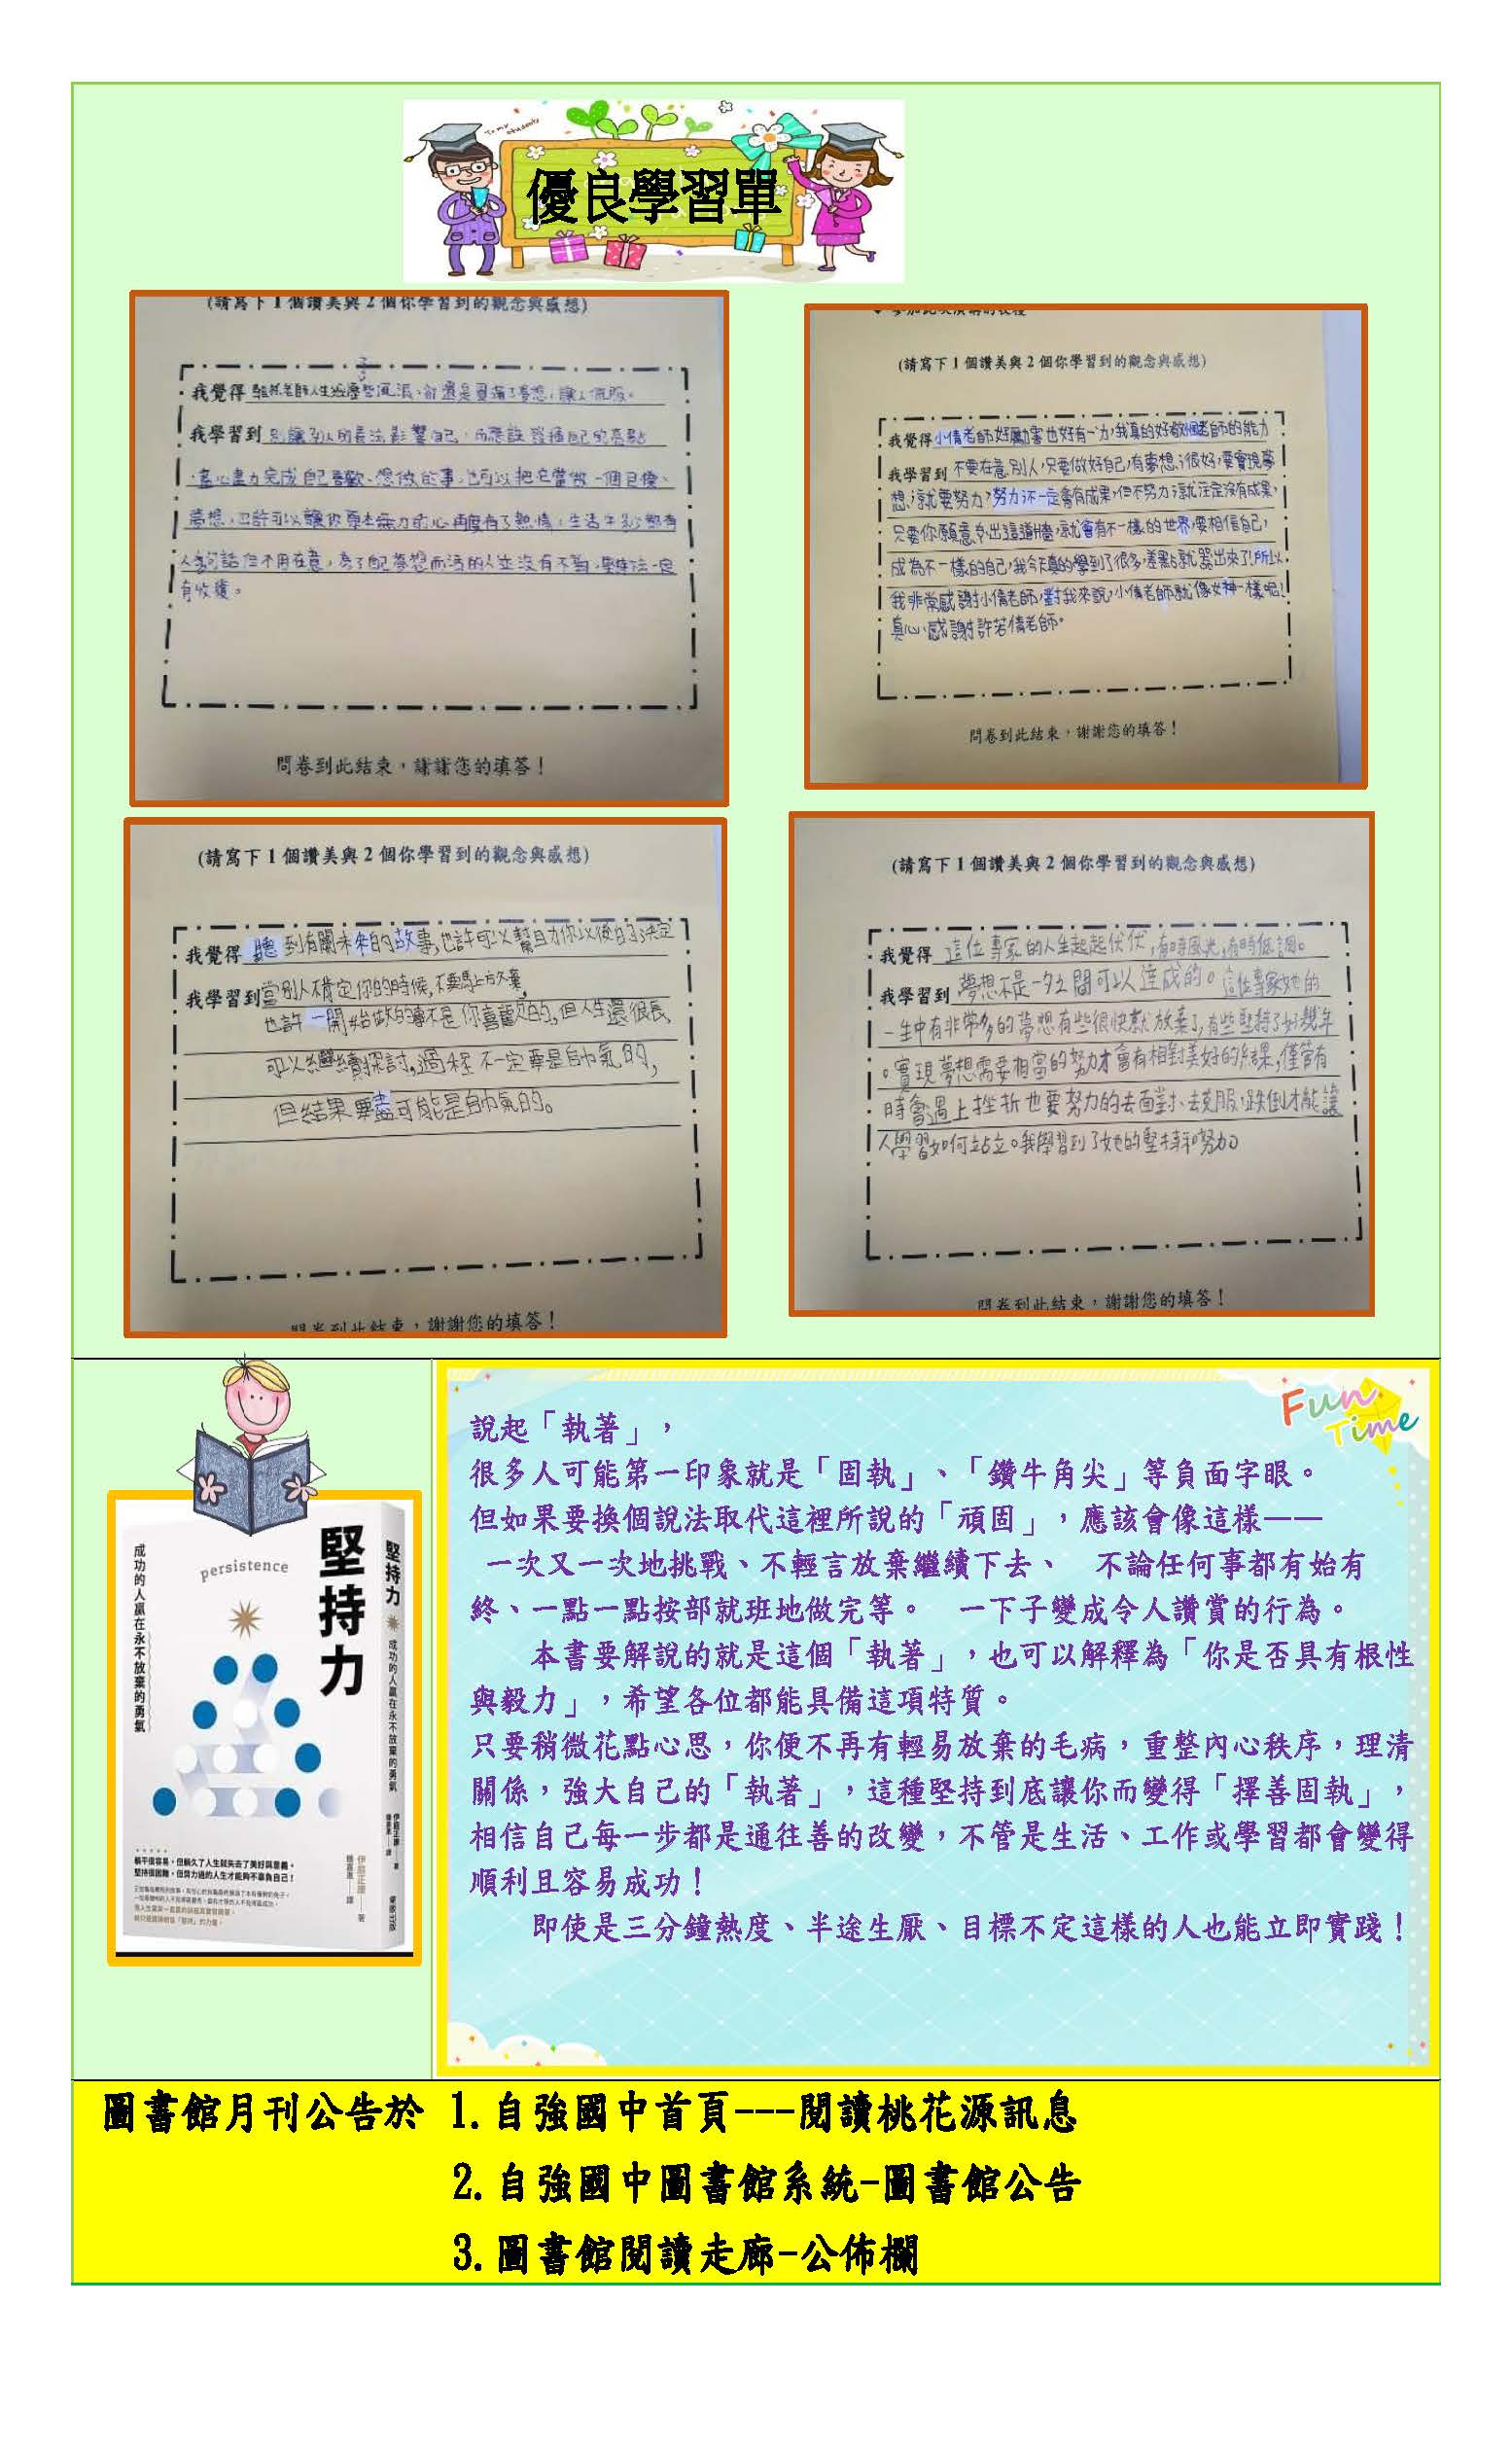 To my students
優良學習單
(請寫下 1 個讚美與 2 個你學習到的觀念與感想)
我覺得 雖然老師人生經歷了些風浪，卻還是圓滿了夢想，讓人佩服。
我學習到 別讓別人的看法影響自己，而應該發揮自己的亮點
，盡心盡力完成自己喜歡、想做的事，也可以把它當做一個目標、
夢想，也許可以讓你原本無力的心再度有了熱情，生活中別都有
人說話但不用在意，為了自己夢想而活的人並沒有不對，堅持法一定
有收穫。
問卷到此結束，謝謝您的填答！
(請寫下 1 個讚美與 2 個你學習到的觀念與感想)
我覺得 小倩老師好厲害也好有心力，我真的好敬佩老師的能力
我學習到 不要在意別人，只要做好自己，有夢想，很好，要實現夢
想，就要努力，努力不一定會有成果，但不努力就注定沒有成果，
只要你願意走出這道牆，就會有不一樣的世界，要相信自己，
成為不一樣的自己，我今天真的學到了很多，差點就哭出來了!所以
我非常感謝小倩老師，對我來說，小倩老師就像女神一樣呢!
真心感謝許若倩老師。
問卷到此結束，謝謝您的填答！
(請寫下 1 個讚美與 2 個你學習到的觀念與感想)
我覺得 聽到有關未來的故事，也許可以幫助你以後的決定
我學習到 當別人不肯定你的時候，不要馬上放棄，
也許一開始做的事不是你喜歡的，但人生還很長，
可以繼續探討，過程不一定要是帥氣的，
但結果畢盡可能是帥氣的。
問卷到此結束，謝謝您的填答！
(請寫下 1 個讚美與 2 個你學習到的觀念與感想)
我覺得 這位專家的人生起起伏伏，有時風光，有時低調。
我學習到 夢想不是一夕之間可以達成的。這位專家她的
一生中有非常多的夢想有些很快就放棄了，有些堅持了好幾年
。實現夢想需要相當的努力才會有相對美好的結果，僅管有
時會遇上挫折也要努力的去面對、去克服，跌倒才能讓
人學習如何站立。我學習到了她的堅持和努力。
問卷到此結束，謝謝您的填答！
Fun
Time
說起「執著」，
很多人可能第一印象就是「固執」、「鑽牛角尖」等負面字眼。
但如果要換個說法取代這裡所說的「頑固」，應該會像這樣——
一次又一次地挑戰、不輕言放棄繼續下去、 不論任何事都有始有
終、一點一點按部就班地做完等。 一下子變成令人讚賞的行為。
本書要解說的就是這個「執著」，也可以解釋為「你是否具有根性
與毅力」，希望各位都能具備這項特質。
只要稍微花點心思，你便不再有輕易放棄的毛病，重整內心秩序，理清
關係，強大自己的「執著」，這種堅持到底讓你而變得「擇善固執」，
相信自己每一步都是通往善的改變，不管是生活、工作或學習都會變得
順利且容易成功！
即使是三分鐘熱度、半途生厭、目標不定這樣的人也能立即實踐！
成功的人贏在永不放棄的勇氣
persistence
堅持力
堅持力
成功的人贏在永不放棄的勇氣
躺平很容易，但躺久了人生就失去了美好與意義。
堅持很困難，但努力過的人生才能夠不辜負自己！
伊庭正康 著
圖書館月刊公告於 1.自強國中首頁---閱讀桃花源訊息
2.自強國中圖書館系統-圖書館公告
3.圖書館閱讀走廊-公佈欄